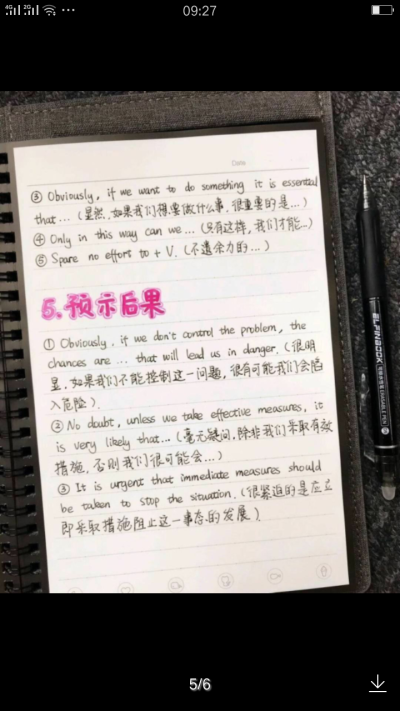 4G 2G ... 09:27
Date
③ Obviously, if we want to do something it is essential
that... (显然,如果我们想要做什么事,很重要的是...)
④ Only in this way can we... (只有这样,我们才能...)
⑤ Spare no efforts to + V. (不遗余力的...)
5.预示后果
① Obviously, if we don't control the problem, the
chances are ... that will lead us in danger. (很明
显,如果我们不能控制这一问题,很有可能我们会陷
入危险).
② No doubt, unless we take effective measures, it
is very likely that... (毫无疑问,除非我们采取有效
措施,否则我们很可能会...)
③ It is urgent that immediate measures should
be taken to stop the situation. (很紧迫的是应立
即采取措施阻止这一事态的发展).
5/6